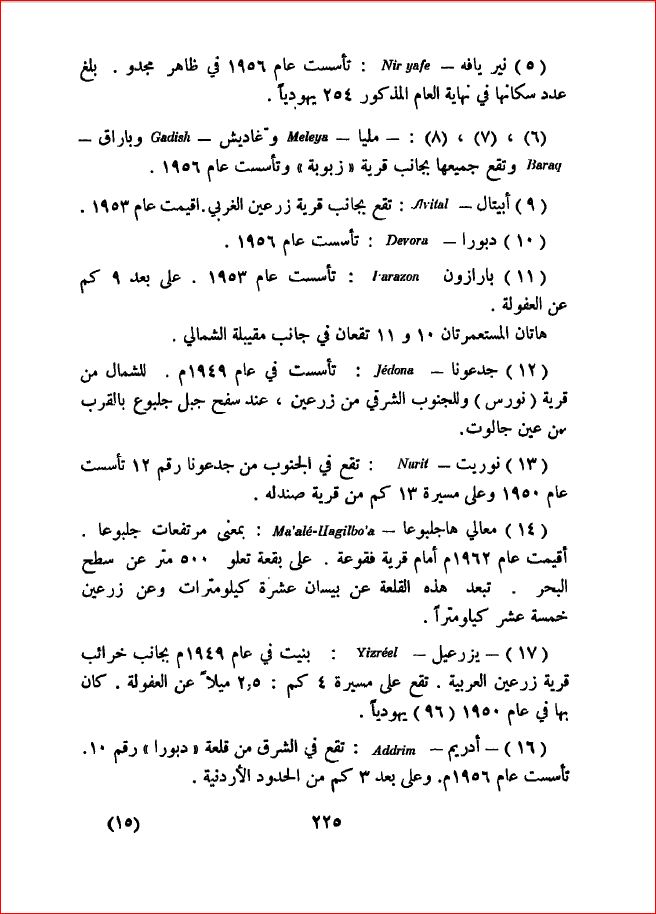 ( ٥ ) نير يافه — Nir yafe : تأسست عام ١٩٥٦ في ظاهر مجدو . بلغ
عدد سكانها في نهاية العام المذكور ٢٥٤ يهودياً .
(٦) ، (٧) ، (٨) : — مليا — Meleya و غاديش — Gadish وباراق —
Baraq وتقع جميعها بجانب قرية « زبوبة » وتأسست عام ١٩٥٦ .
( ٩ ) أبيتال — Avital : تقع بجانب قرية زرعين الغربي . اقيمت عام ١٩٥٣ .
( ١٠ ) دبورا — Devora : تأسست عام ١٩٥٦ .
( ١١ ) بارازون Parazon : تأسست عام ١٩٥٣ . على بعد ٩ كم
عن العفولة .
هاتان المستعمرتان ١٠ و ١١ تقعان في جانب مقيبلة الشمالي .
( ١٢ ) جدعونا — Jédona : تأسست في عام ١٩٤٩م . للشمال من
قرية ( نورس ) وللجنوب الشرقي من زرعين ، عند سفح جبل جلبوع بالقرب
من عين جالوت.
( ١٣ ) نوريت — Nurit : تقع في الجنوب من جدعونا رقم ١٢ تأسست
عام ١٩٥٠ وعلى مسيرة ١٣ كم من قرية صندله .
( ١٤ ) معالي هاجلبوعا — Ma'alé-Hagilbo'a : بمعنى مرتفعات جلبوعا .
أقيمت عام ١٩٦٢م أمام قرية فقوعة . على بقعة تعلو ٥٠٠ متر عن سطح
البحر . تبعد هذه القلعة عن بيسان عشرة كيلومترات وعن زرعين
خمسة عشر كيلومتراً .
( ١٧ ) — يزرعيل — Yizréel : بنيت في عام ١٩٤٩م بجانب خرائب
قرية زرعين العربية . تقع على مسيرة ٤ كم : ٢,٥ ميلاً عن العفولة . كان
بها في عام ١٩٥٠ ( ٩٦ ) يهودياً .
( ١٦ ) — أدريم — Addrim : تقع في الشرق من قلعة « دبورا » رقم ١٠.
تأسست عام ١٩٥٦م. وعلى بعد ٣ كم من الحدود الأردنية .
٢٢٥
(١٥)